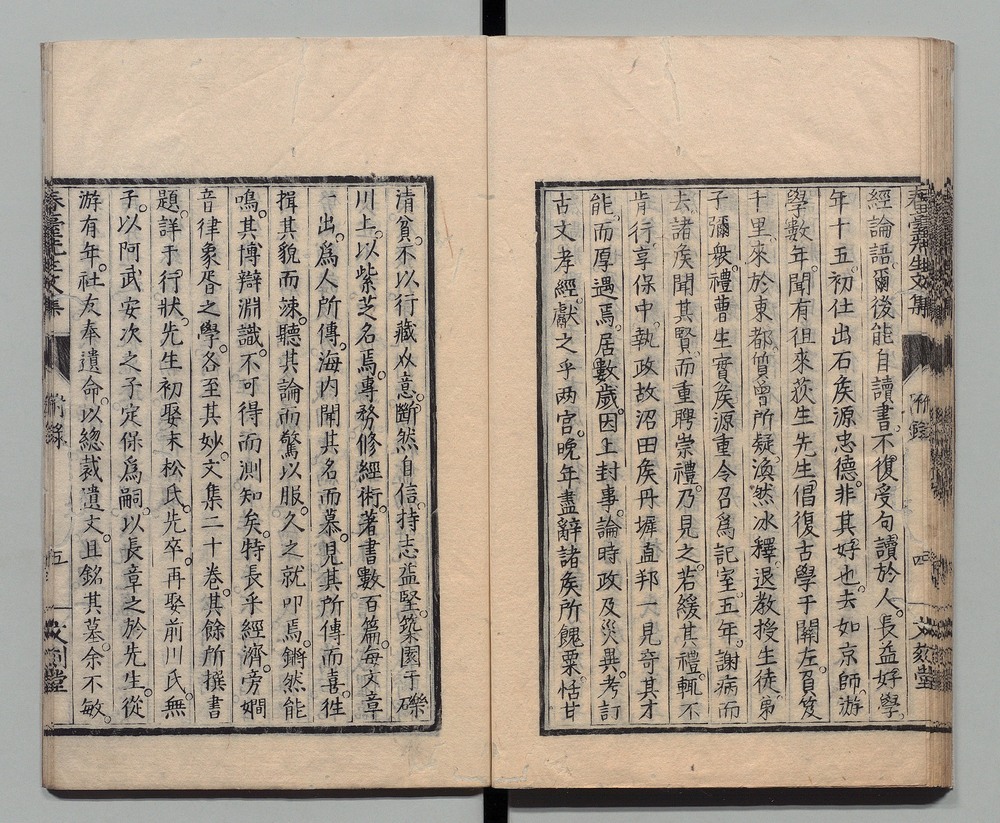 經論語。爾後能自讀書。不復受句讀於人。長益好學。
年十五。初仕出石矦源忠德。非其好也。去如京師。游
學數年。聞有徂來荻生先生。倡復古學于關左。負笈
千里。來於東都。曾所疑。渙然冰釋。退教授生徒。弟
子彌衆。禮曹生實矦源重令召爲記室。五年。謝病而
去。諸矦聞其賢。而重聘崇禮。乃見之。若緩其禮。輒不
肯行。享保中。執政故沼田矦丹墀直邦一見奇其才
能。而厚遇焉。居數歲。因上封事。論時政及災異。考訂
古文孝經。獻之乎两宫。晚年盡辭諸矦所餽粟。恬甘
春臺先生文集
附録
四
文刻堂
清貧。不以行藏爲意。斷然自信。持志益堅。築園于礫
川上。以紫芝名焉。專務修經術。著書數百篇。每文章
一出。爲人所傳。海内聞其名而慕。見其所傳而喜。徃
揖其貌而竦。聽其論而驚以服。久之就叩焉。鏘然能
鳴。其博辯淵識。不可得而測知矣。特長乎經濟。旁嫻
音律象胥之學。各至其妙。文集二十卷。其餘所撰書
題。詳于行狀。先生初娶末松氏。先卒。再娶前川氏。無
子。以阿武安次之子定保爲嗣。以長章之於先生。從
游有年。社友奉遺命。以總裁遺文。且銘其墓。余不敏。
春臺先生文集
附録
五
文刻堂